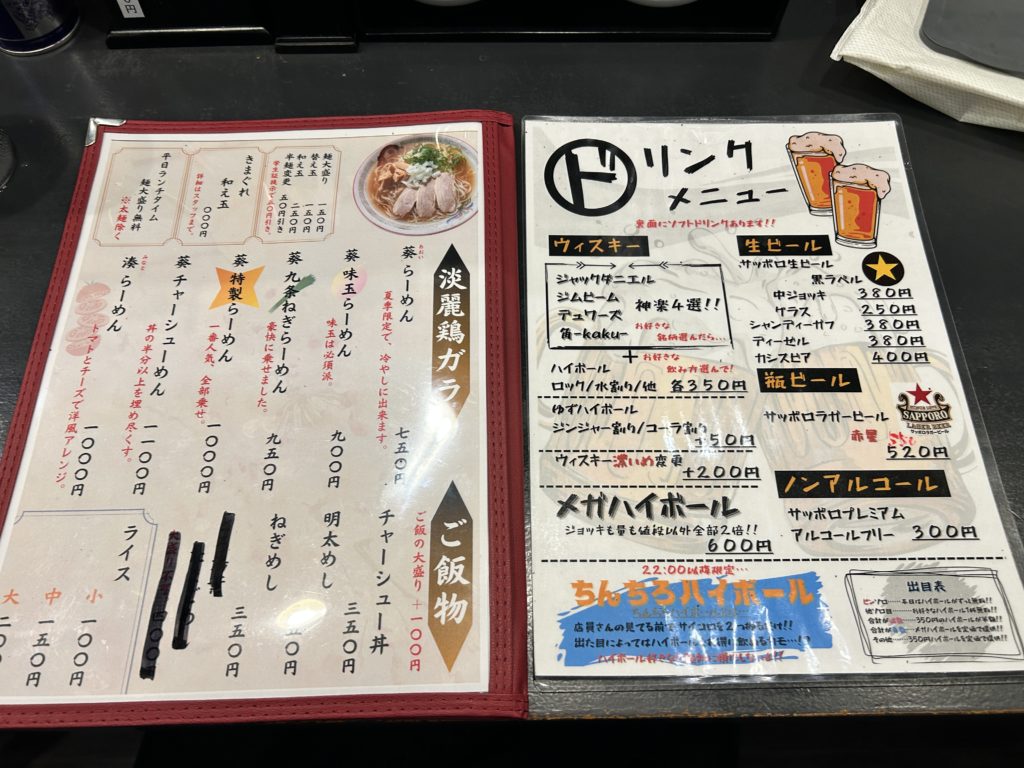 円
淡麗鶏ガラ
葵らーめん
あおい
夏季限定で、冷やしに出来ます。
七五〇円
葵 味玉らーめん
味玉は必須派。
九〇〇円
葵 九条ねぎらーめん
豪快に乗せました。
九五〇円
葵 特製らーめん
一番人気、全部乗せ。
一〇〇〇円
葵 チャーシューめん
丼の半分以上を埋め尽くす。
一一〇〇円
湊らーめん
みなと
トマトとチーズで洋風アレンジ。
一〇〇〇円
麺大盛り 一五〇円
替え玉 一五〇円
和え玉 二五〇円
半麺変更 五〇円引き
学生証提示で五〇円引き。
きまぐれ
和え玉
〇〇〇円
詳細はスタッフまで。
平日ランチタイム
麺大盛り無料
※太麺除く
ご飯物
ご飯の大盛り +一〇〇円
チャーシュー丼
明太めし 三五〇円
ねぎめし
五〇円
三五〇円
ライス
小 一〇〇円
中 一五〇円
大
ドリンク
メニュー
裏面にソフトドリンクあります!!
ウィスキー
ジャックダニエル
ジムビーム
デュワーズ
角-kaku-
神楽4選!!
お好きな
銘柄選んだら…
+お好きな
飲み方選んで!
ハイボール
ロック/水割り/他 各350円
ゆずハイボール
ジンジャー割り/コーラ割り
+50円
ウィスキー濃いめ変更
+200円
メガハイボール
ジョッキも量も値段以外全部2倍!!
600円
生ビール
サッポロ生ビール
黒ラベル
中ジョッキ 380円
グラス 250円
シャンディーガフ 380円
ディーゼル 380円
カシスビア 400円
瓶ビール
サッポロラガービール
赤星
550
520円
SAPPORO
LAGER BEER
サッポロラガービール
ノンアルコール
サッポロプレミアム
アルコールフリー 300円
22:00以降限定…
ちんちろハイボール
店員さんの見てる前でサイコロを2つ振るだけ!!
出た目によってはハイボールお得に飲めるカモ…!?
出目表